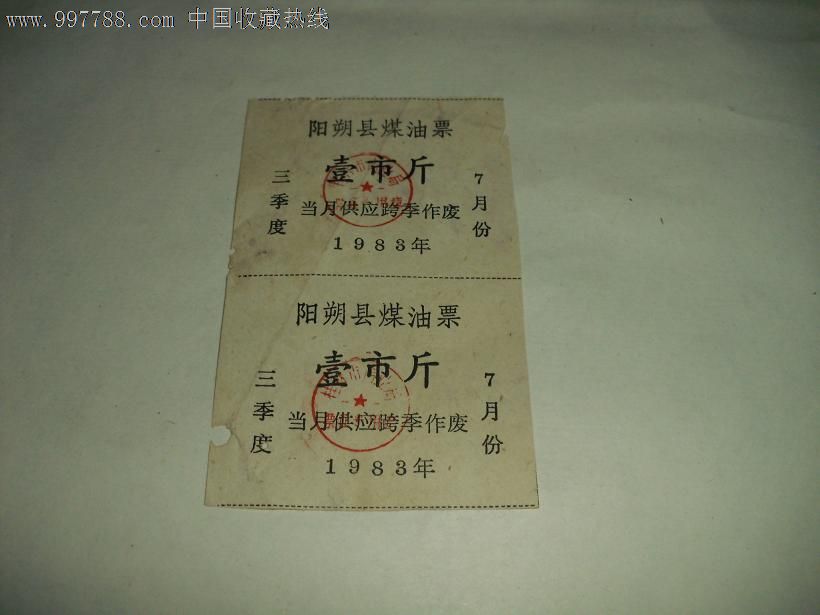 www.997788.com 中国收藏热线
阳朔县煤油票
壹市斤
三季度
7月份
当月供应跨季作废
1983年
阳朔县煤油票
壹市斤
三季度
7月份
当月供应跨季作废
1983年